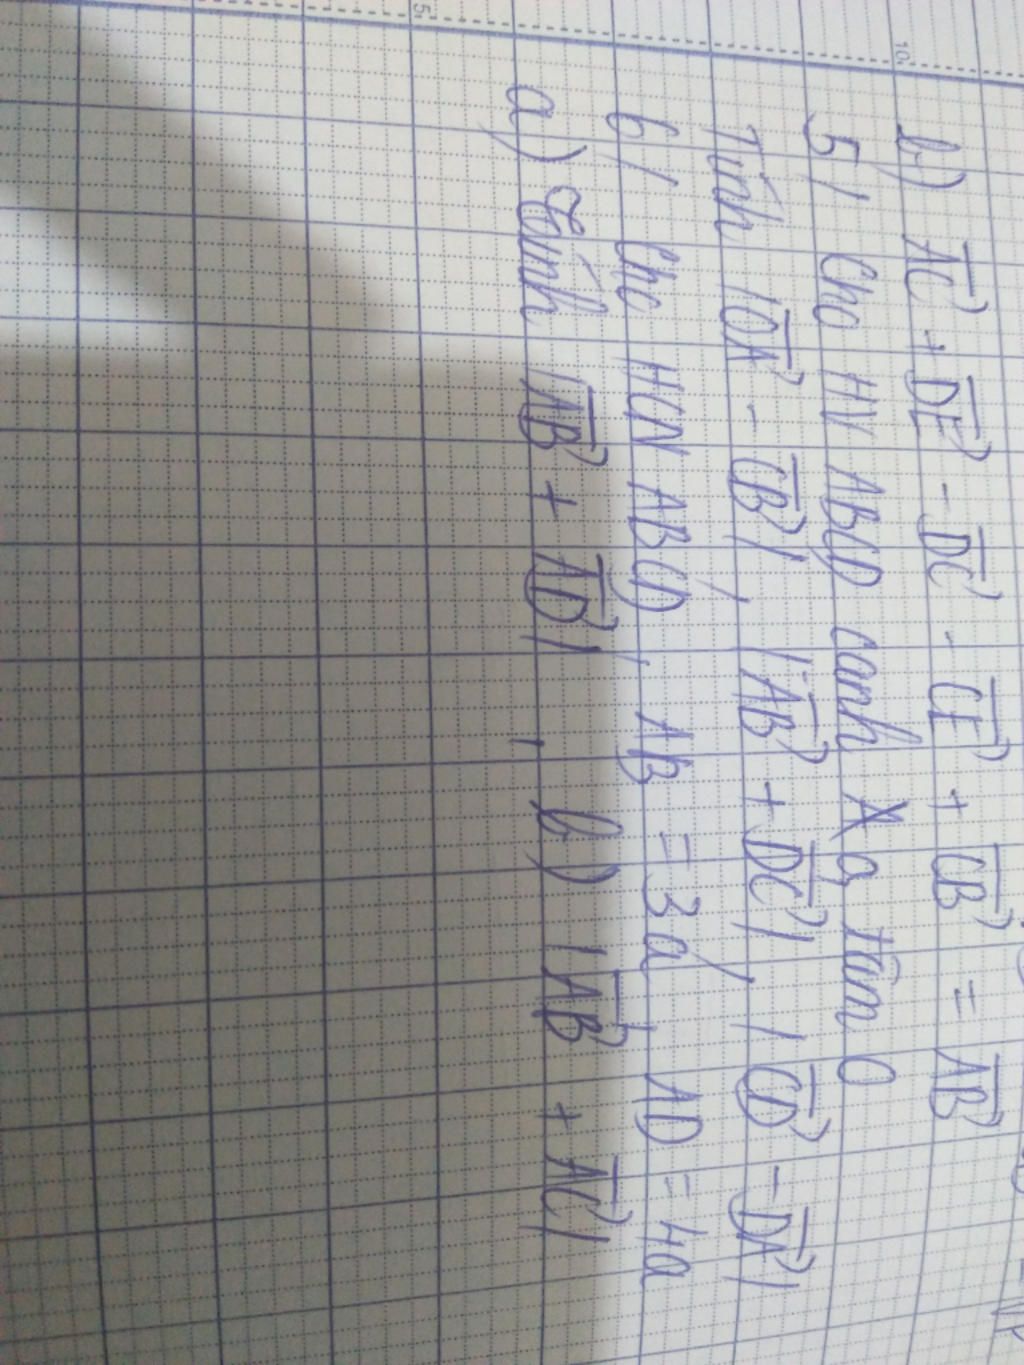 b) AC⃗ + DE⃗ - DC⃗ - CE⃗ + CB⃗ = AB⃗
5/ Cho HV ABCD cạnh a, tâm O
Tính |OA⃗ - CB⃗|, |AB⃗ + DC⃗|, |CD⃗ - DA⃗|
6/ Cho HCN ABCD, AB = 3a, AD = 4a
a) Tính |AB⃗ + AD⃗|, b) |AB⃗ + AC⃗|
5
10